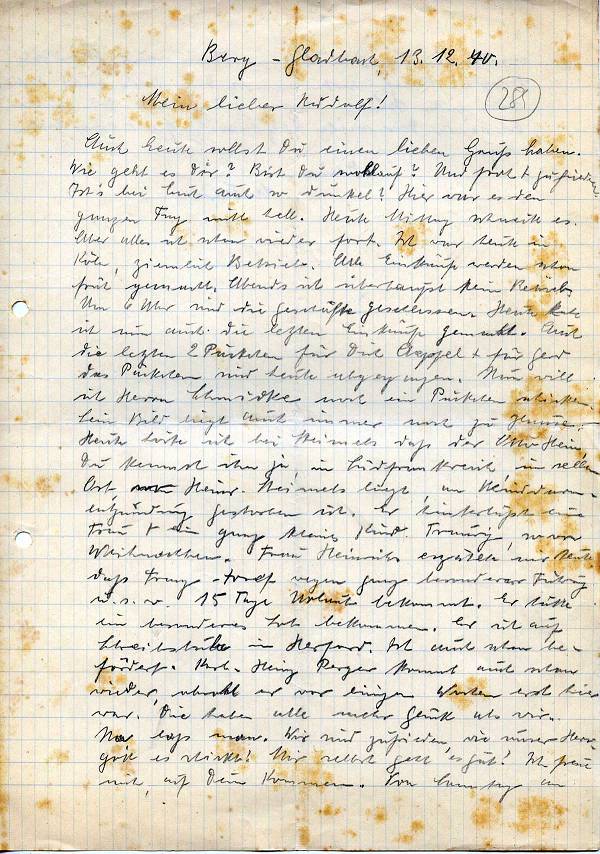 Berg-Gladbach, 13.12.40.
285
Mein lieber Rudolf!
Auch heute sollst Du einen lieben Gruß haben.
Wie geht es Dir? Bist Du wohlauf? Und froh + zufrieden,
Ist's bei Euch auch so dunkel? Hier war es den
ganzen Tag nicht hell. Heute Mittag schneite es.
Aber alles ist schon wieder fort. Ich war heute in
Köln, ziemlich Betrieb. Alle Einkäufe werden schon
früh gemacht. Abends ist überhaupt kein Betrieb.
Um 6 Uhr sind die Geschäfte geschlossen. Heute habe
ich nun auch die letzten Einkäufe gemacht. Auch
die letzten 2 Päckchen für Dich Aepfel + für Gerd
das Päckchen sind heute abgegangen. Nun will
ich Herrn Schmidtke noch ein Päckchen schicken.
Sein Bild liegt auch immer noch zu Hause.
Heute hörte ich bei Steimels daß der Otto Hein,
Du kennst ihn ja, in Südfrankreich, im selben
Ort, Heinr. Steimels liegt, an
entzündung gestorben ist. Er hinterläßt eine
Frau + ein ganz kleines Kind. Traurig, so vor
Weihnachten. Frau Heinrichs erzählte mir heute
daß Franz-Josef wegen ganz besonderer Führung
u.s.w. 15 Tage Urlaub bekommt. Er hätte
ein besonderes Lob bekommen. Er ist auf
Schreibstube in Herford. Ist auch schon be-
fördert. Karl-Heinz Perger kommt auch schon
wieder, obwohl er vor einigen Wochen erst hier
war. Die haben alle mehr Glück als wir.
Na, laß man. Wir sind zufrieden, wie unser Herr-
gott es schickt! Mir selbst geht es gut! Ich freue
mich, auf Dein Kommen. Von Samstag an